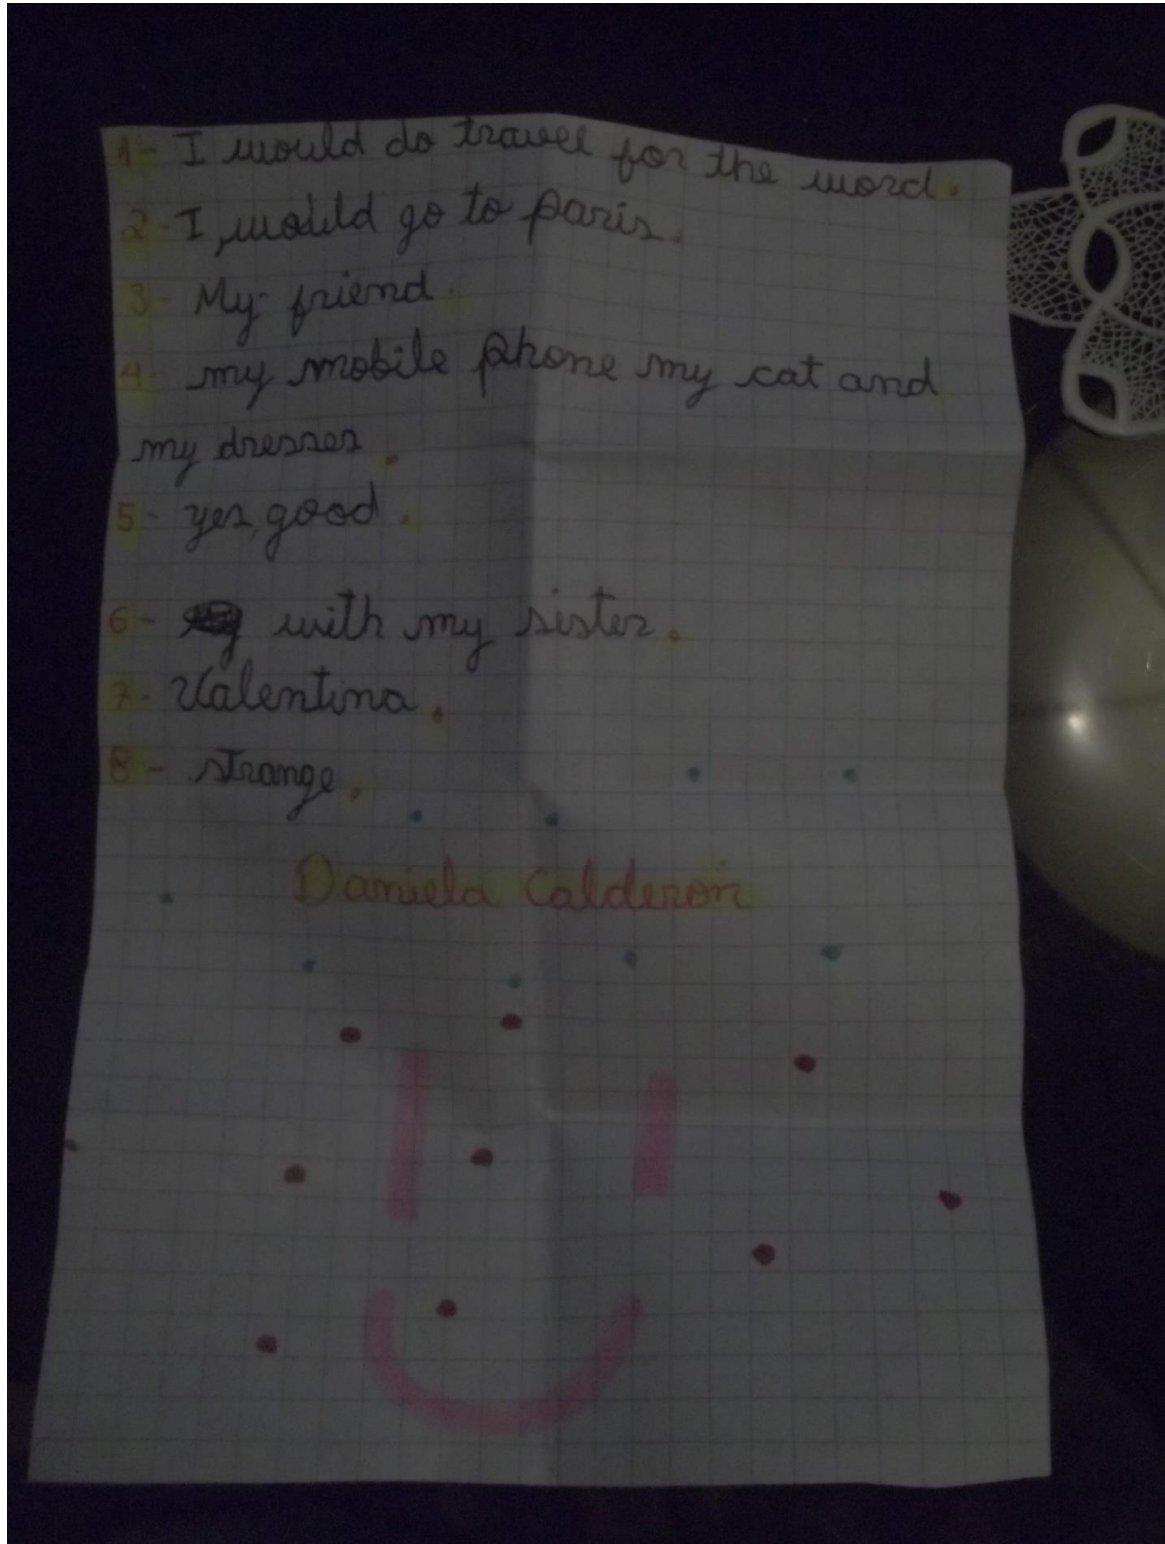 1- I would do travel for the word.
2- I would go to paris.
3- My friend.
4- my mobile phone my cat and
my dresses.
5- yes, good.
6- with my sister.
7- Valentina.
8- strange.
Daniela Calderón